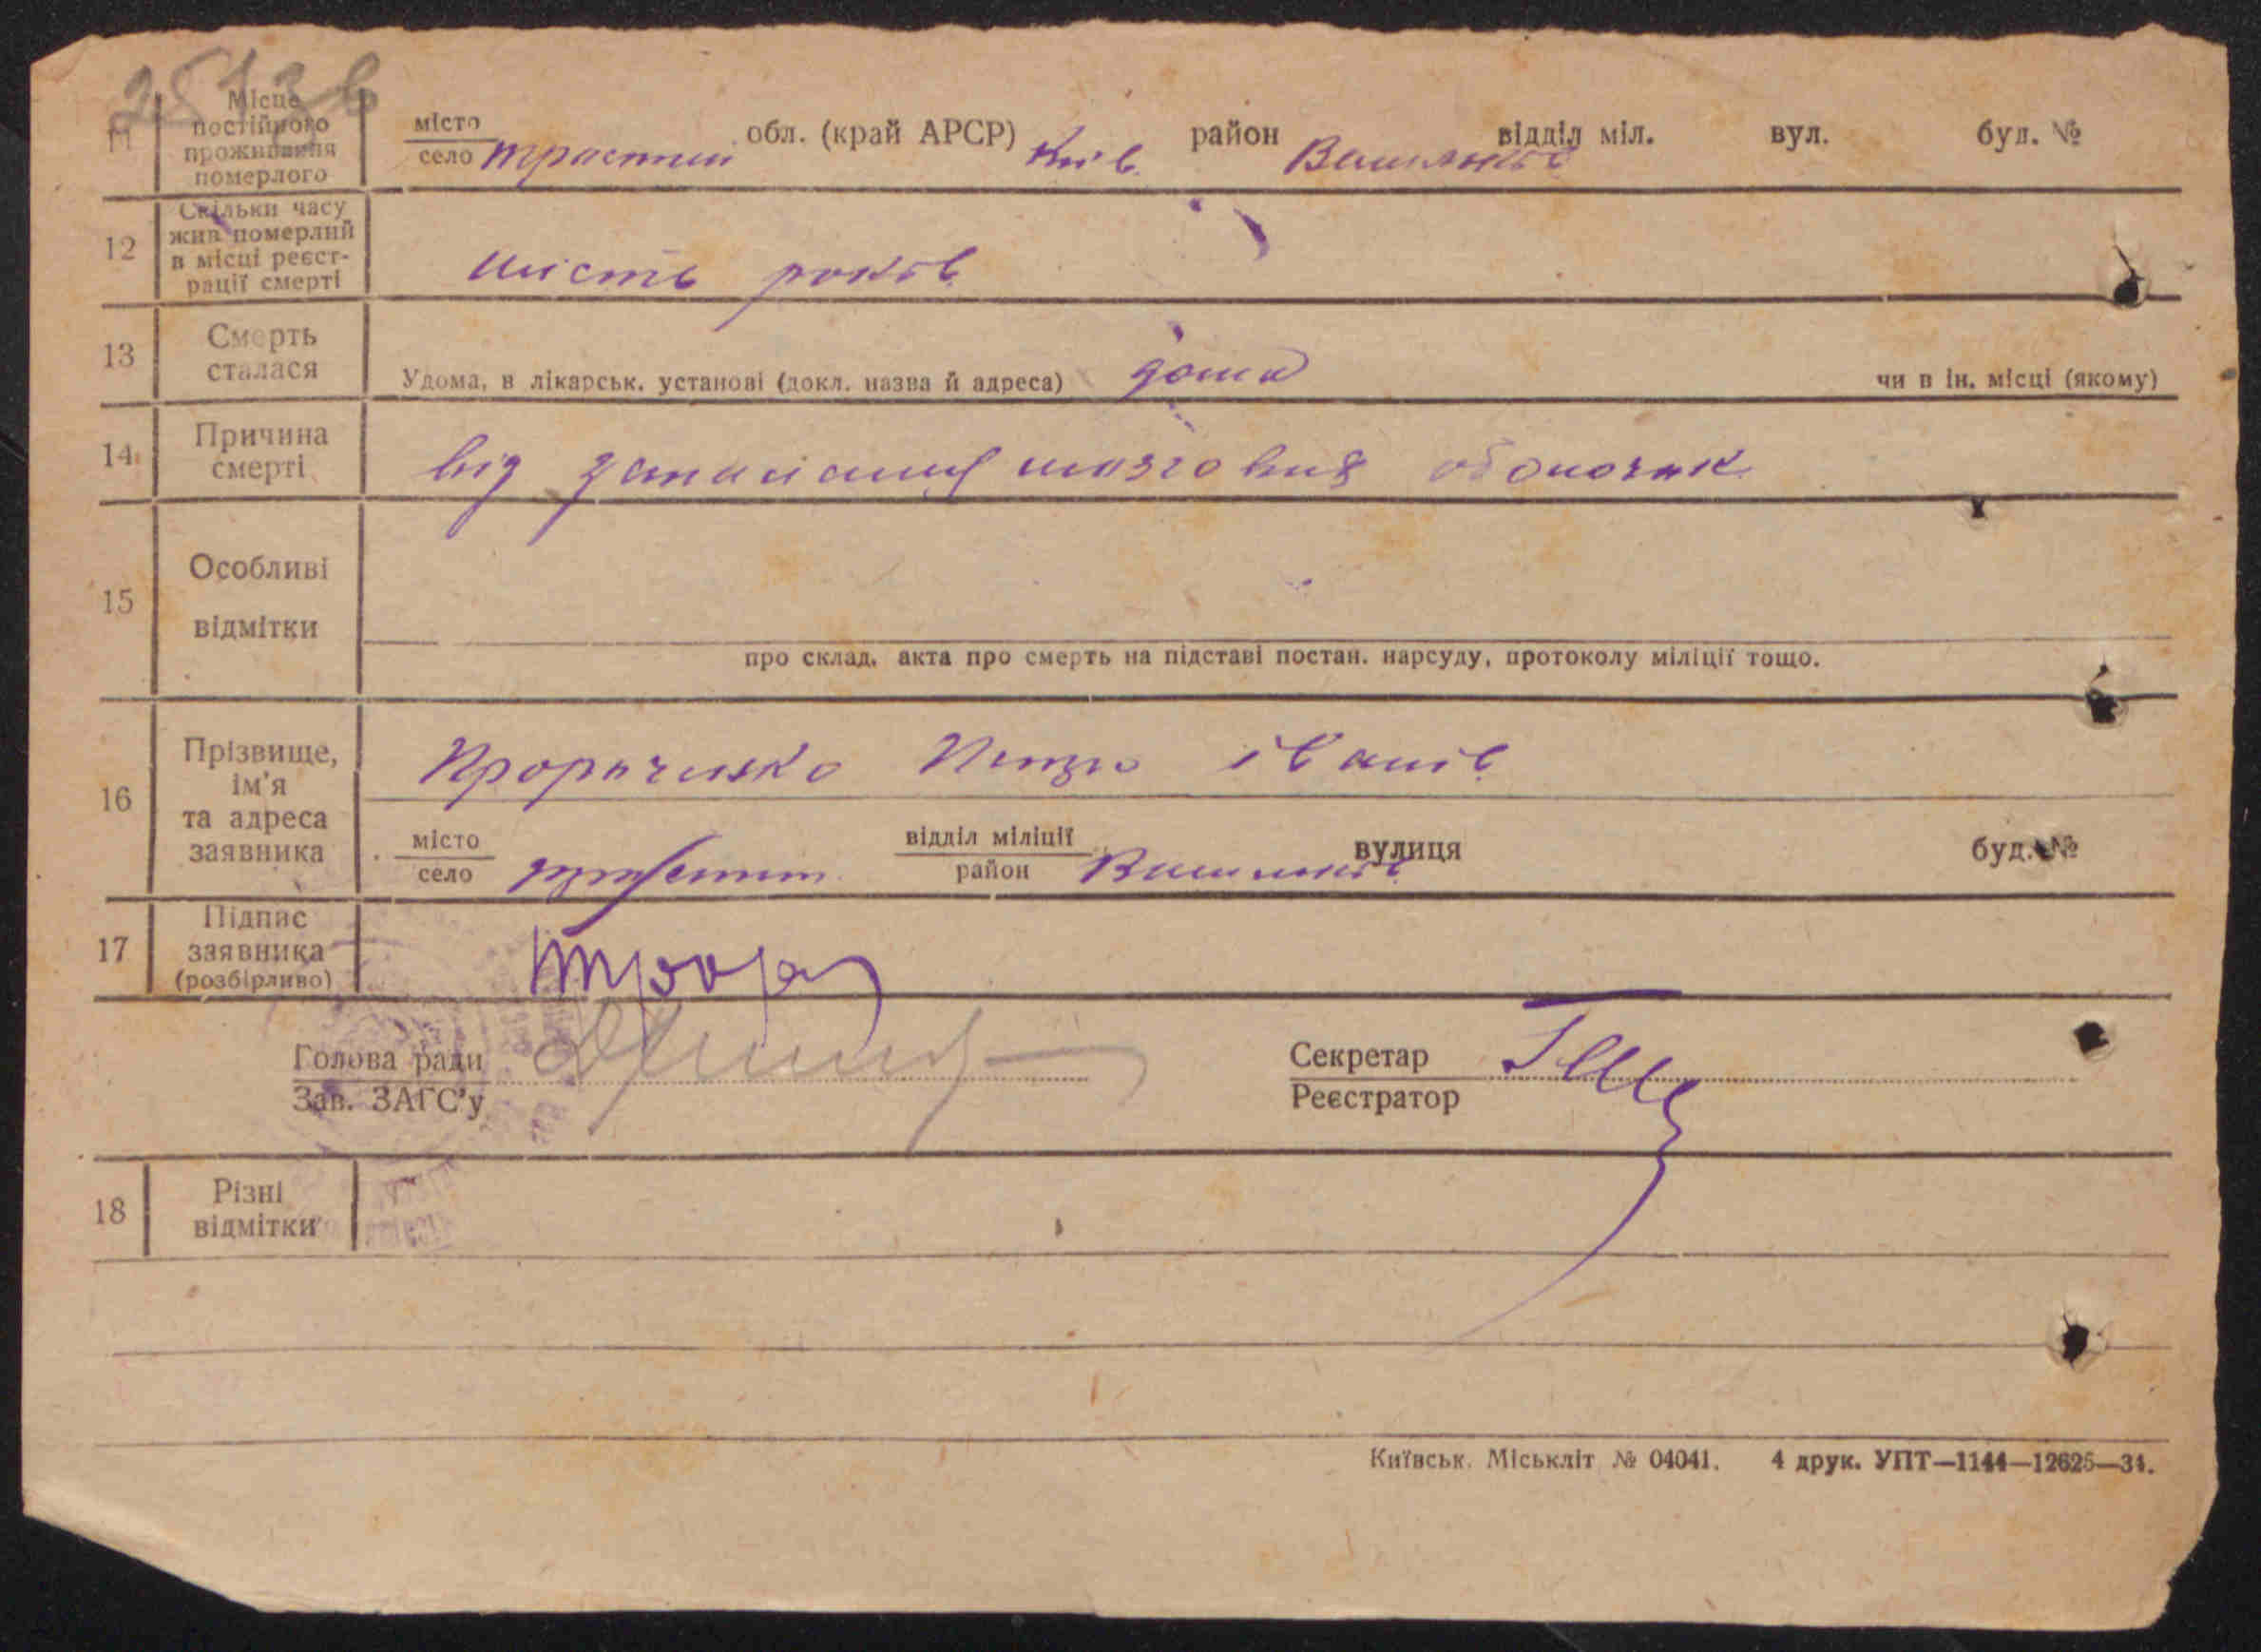 11
Місце
постійного
проживання
померлого
місто
село
обл. (край АРСР) Київ. район Васильків відділ міл. вул. буд. №
12
Скільки часу
жив померлий
в місці реєст-
рації смерті
шість років
13
Смерть
сталася
Удома, в лікарськ. установі (докл. назва й адреса) дома чи в ін. місці (якому)
14
Причина
смерті
від запалання мозгових оболочик
15
Особливі
відмітки
про склад. акта про смерть на підставі постан. нарсуду, протоколу міліції тощо.
16
Прізвище,
ім'я
та адреса
заявника
Петро іванів
місто
село
відділ міліції
район Васильків вулиця буд. №
17
Підпис
заявника
(розбірливо)
Голова ради
Зав. ЗАГС'у
Секретар
Реєстратор
18
Різні
відмітки
Київськ. Міськліт № 04041. 4 друк. УПТ—1144—12625—34.